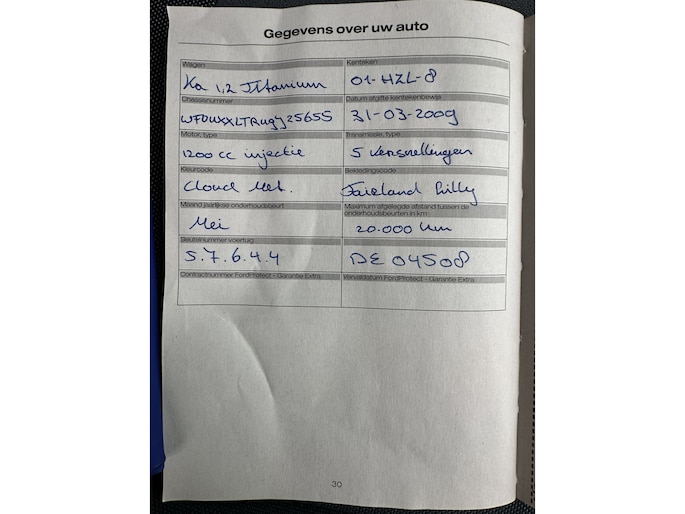 Gegevens over uw auto
Wagen Kenteken
Ka 1,2 Titanium 01-HZL-8
Chassisnummer Datum afgifte kentekenbewijs
31-03-2009
Motor, type Transmissie, type
1200 cc injectie 5 versnellingen
Kleurcode Bekledingscode
Cloud Met.
Maand jaarlijkse onderhoudsbeurt Maximum afgelegde afstand tussen de
onderhoudsbeurten in km:
Mei 20.000 km
Sleutelnummer voertuig
5.7.6.4.4 DE 04508
Contractnummer FordProtect - Garantie Extra Vervaldatum FordProtect - Garantie Extra
30